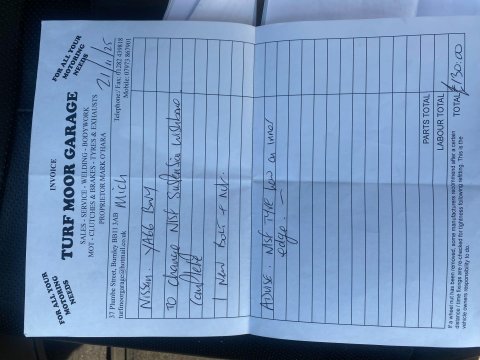 INVOICE
FOR ALL YOUR MOTORING NEEDS
TURF MOOR GARAGE
FOR ALL YOUR MOTORING NEEDS
SALES - SERVICE - WELDING - BODYWORK
MOT - CLUTCHES & BRAKES - TYRES & EXHAUSTS
PROPRIETOR MARK O'HARA
21/11/25
37 Plumbe Street, Burnley BB11 3AB
Mich
Telephone / Fax: 01282 439818
turfmoorgarage@hotmail.co.uk
Mobile: 07973 867901
Nissan:
TO Change N/S/F Suspension Wishbone
Complete
1 New Bolt + Nut.
ADVISE: N/S/F TYRE low on inner
edge: —
PARTS TOTAL
LABOUR TOTAL
TOTAL £130.00
If a wheel nut has been removed, some manufacturers recommend after a certain
distance / time fixings are re-checked for tightness following refitting. This is the
vehicle owners responsibility to do.